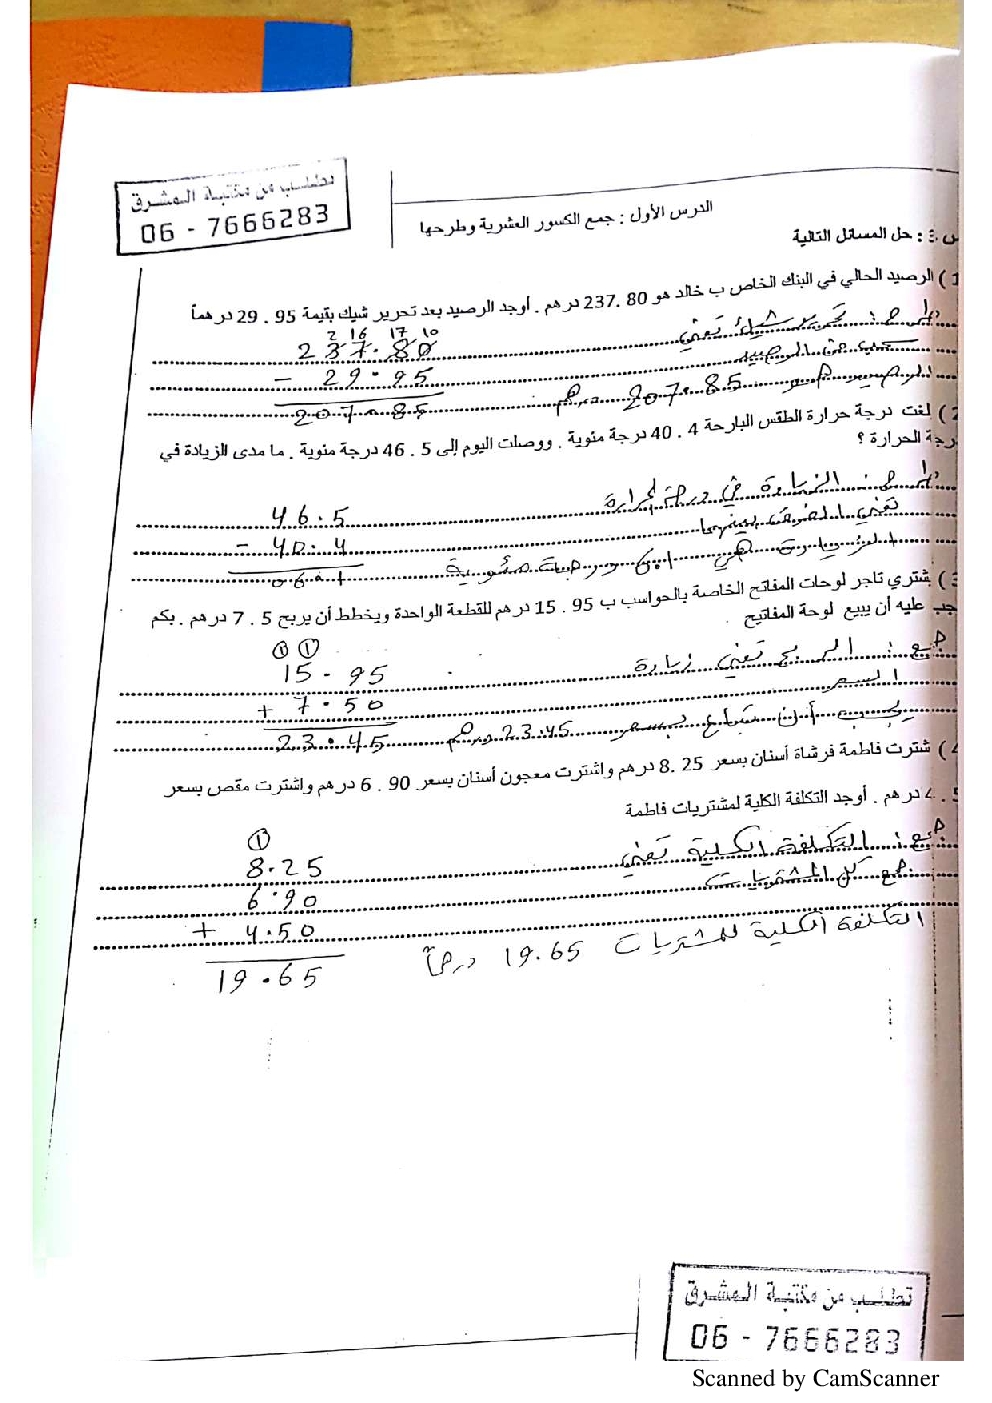 تطلب من مكتبة المشرق
06 - 7666283
الدرس الأول : جمع الكسور العشرية وطرحها
س 3 : حل المسائل التالية
1 ) الرصيد الحالي في البنك الخاص ب خالد هو 80 .237 درهم . أوجد الرصيد بعد تحرير شيك بقيمة 95 . 29 درهماً
طرح : تحرير شيك تعني
سحب من الرصيد
الرصيد هو 207.85 درهم
2 16 17 10
237.80
- 29.95
207.85
2 ) لغت درجة حرارة الطقس البارحة 4 . 40 درجة مئوية . ووصلت اليوم إلى 5 . 46 درجة مئوية . ما مدى الزيادة في
رجة الحرارة ؟
طرح : الزيادة في درجة الحرارة
تعني الفرق بينهما
46.5
- 40.4
06.1
3 ) يشتري تاجر لوحات المفاتح الخاصة بالحواسب ب 95 . 15 درهم للقطعة الواحدة ويخطط أن يربح 5 . 7 درهم . بكم
جب عليه أن يبيع لوحة المفاتيح
جمع : الربح تعني زيادة
السعر
يجب أن تباع بسعر 23.45 درهم
1 1
15.95
+ 7.50
23.45
4 ) شترت فاطمة فرشاة أسنان بسعر 25 .8 درهم واشترت معجون أسنان بسعر 90 . 6 درهم واشترت مقص بسعر
5 . 4 درهم . أوجد التكلفة الكلية لمشتريات فاطمة
جمع : التكلفة الكلية تعني
جمع كل المشتريات
التكلفة الكلية للمشتريات 19.65 درهماً
1
8.25
6.90
+ 4.50
19.65
تطلب من مكتبة المشرق
06 - 7666283
Scanned by CamScanner